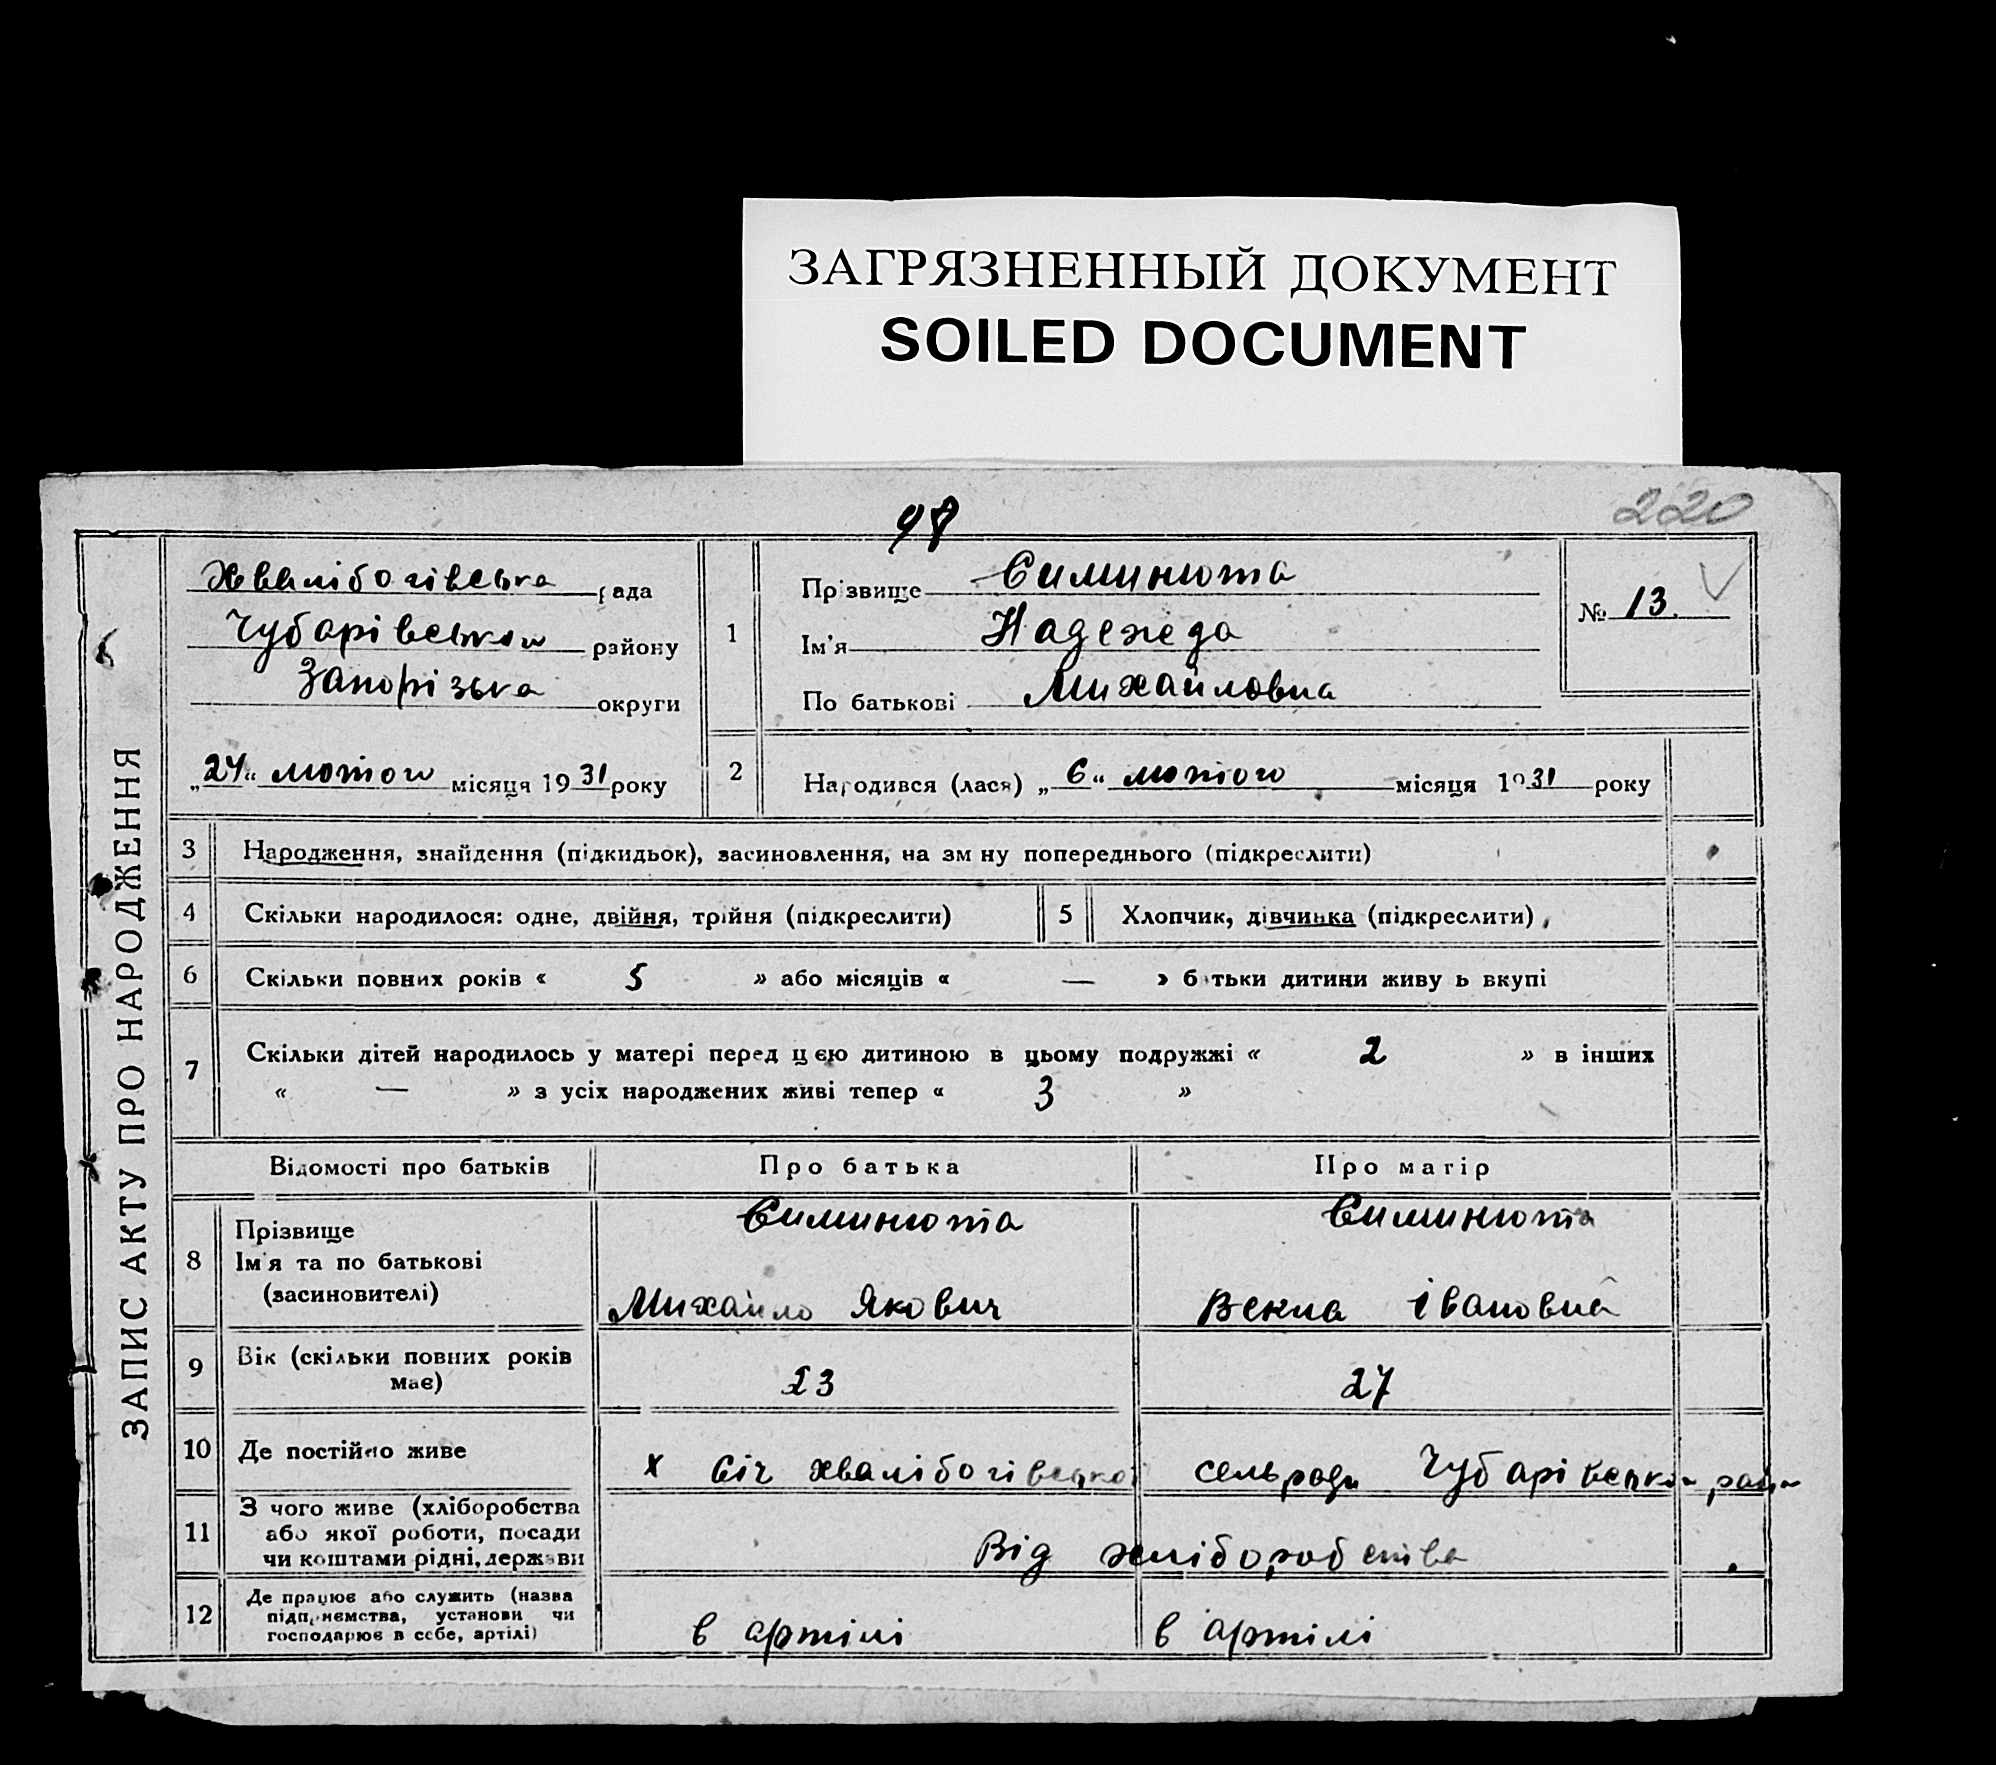 ЗАГРЯЗНЕННЫЙ ДОКУМЕНТ
SOILED DOCUMENT
98
220
ЗАПИС АКТУ ПРО НАРОДЖЕННЯ
Хвалібогівська рада
Чубарівського району
Запорізька округи
„24“ лютого місяця 1931 року
1
Прізвище Симинюта
Ім'я Надежда
По батькові Михайловна
№ 13.
2
Народився (лася) „6“ лютого місяця 1931 року
3 Народження, знайдення (підкидьок), засиновлення, на зм ну попереднього (підкреслити)
4 Скільки народилося: одне, двійня, трійня (підкреслити)
5 Хлопчик, дівчинка (підкреслити)
6 Скільки повних років « 5 » або місяців « — » б тьки дитини живу ь вкупі
7 Скільки дітей народилось у матері перед цією дитиною в цьому подружжі « 2 » в інших
« — » з усіх народжених живі тепер « 3 »
Відомості про батьків Про батька Про матір
8 Прізвище
Ім'я та по батькові
(засиновителі)
Симинюта
Михайло Якович
Симинюта
Векла Івановна
9 Вік (скільки повних років
має)
23 27
10 Де постійно живе
х Січ Хвалібогівської сельради Чубарівськ
11 З чого живе (хліборобства
або якої роботи, посади
чи коштами рідні, держави
Від хліборобства
12 Де працює або служить (назва
підприємства, установи чи
господарює в себе, артілі)
в артілі в артілі